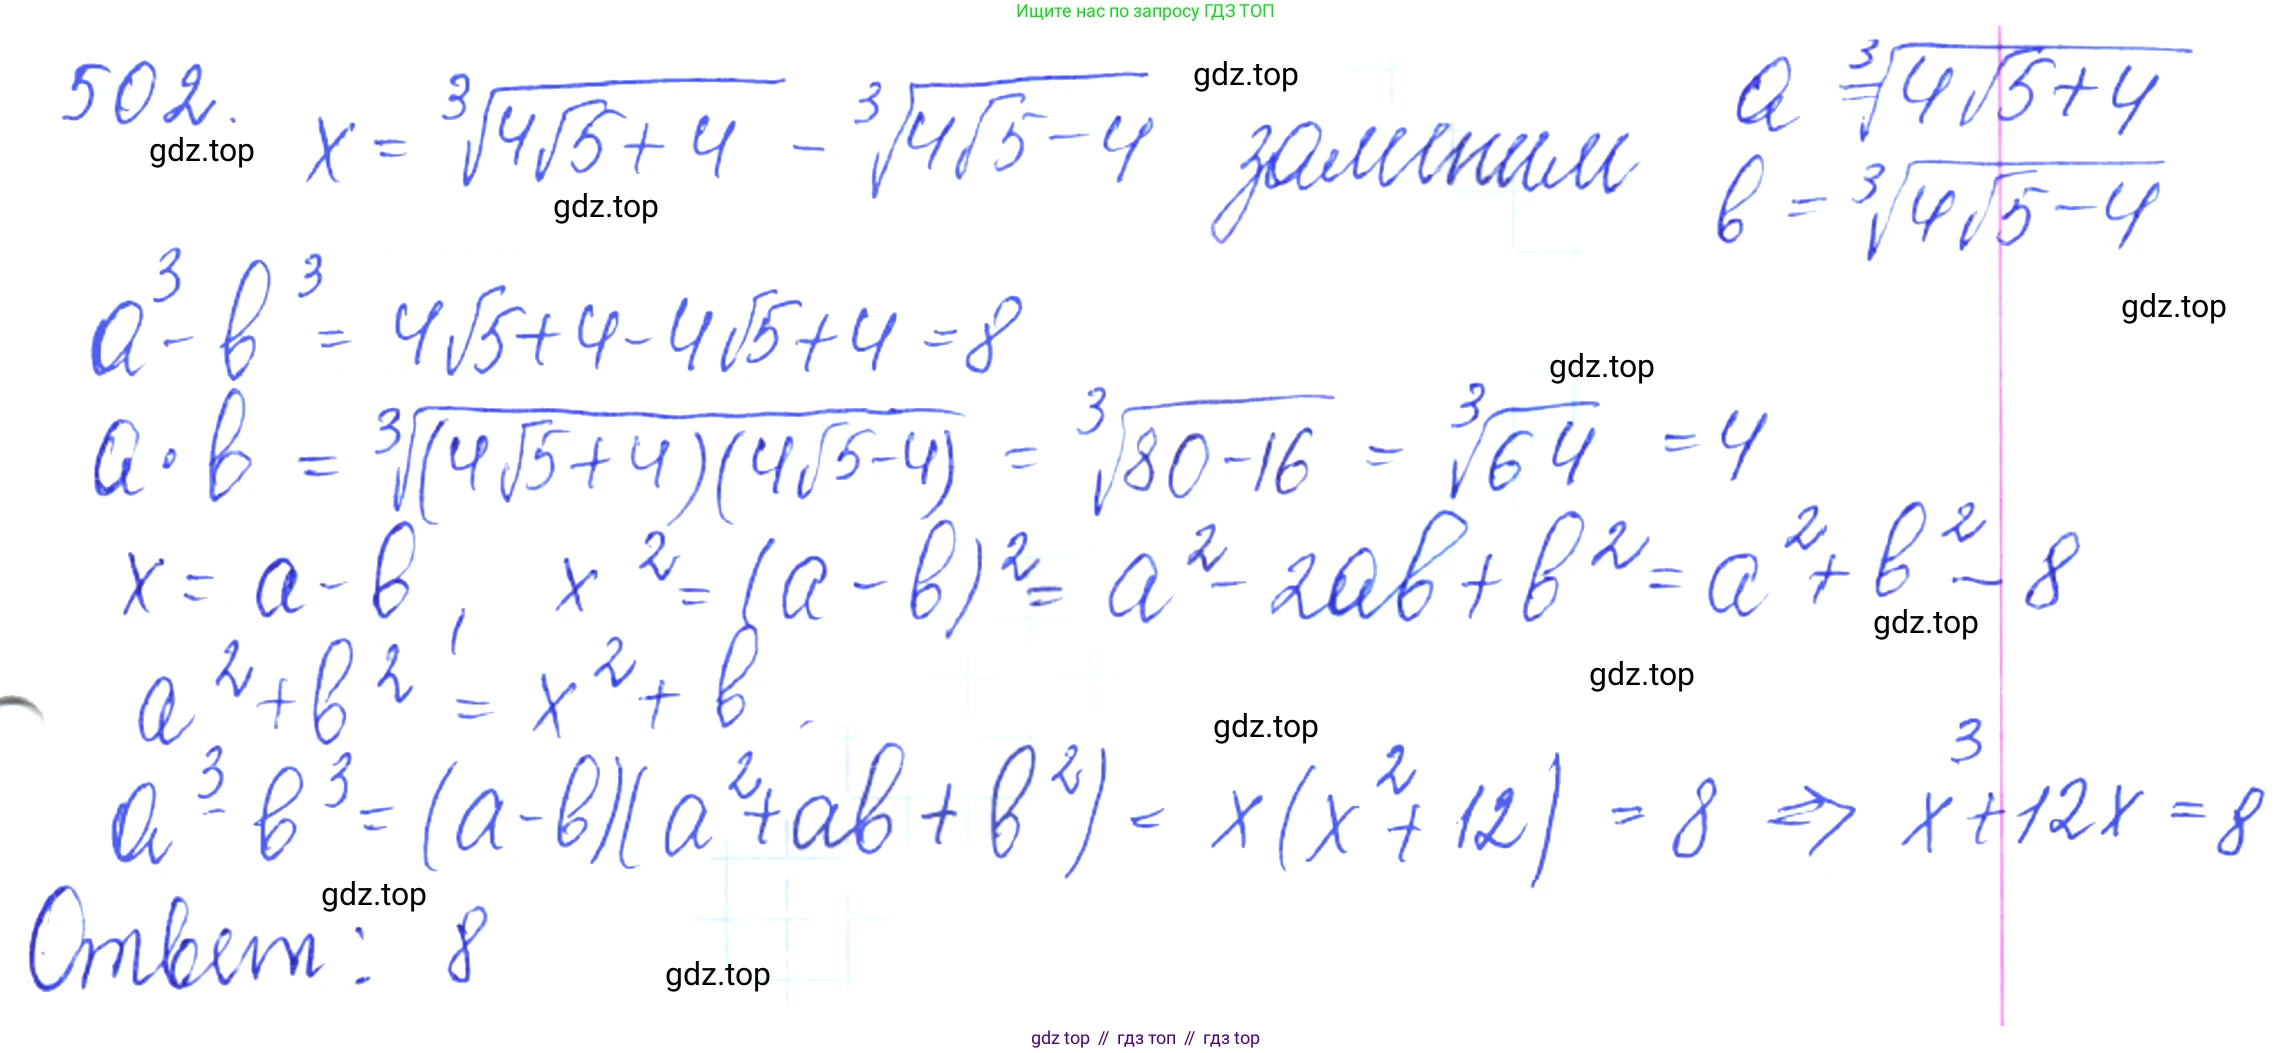 Ищите нас по запросу ГДЗ ТОП
502. x = ∛(4√5+4) − ∛(4√5−4) заменим a = ∛(4√5+4)
b = ∛(4√5−4)
gdz.top
gdz.top
gdz.top
a³ − b³ = 4√5+4−4√5+4 = 8
gdz.top
gdz.top
a·b = ∛((4√5+4)(4√5−4)) = ∛(80−16) = ∛64 = 4
x = a−b, x² = (a−b)² = a² − 2ab + b² = a² + b² − 8
gdz.top
a² + b² = x² + b.
gdz.top
gdz.top
a³ − b³ = (a−b)(a² + ab + b²) = x(x² + 12) = 8 ⇒ x³ + 12x = 8
gdz.top
Ответ: 8
gdz.top
gdz top // гдз топ // гдз top